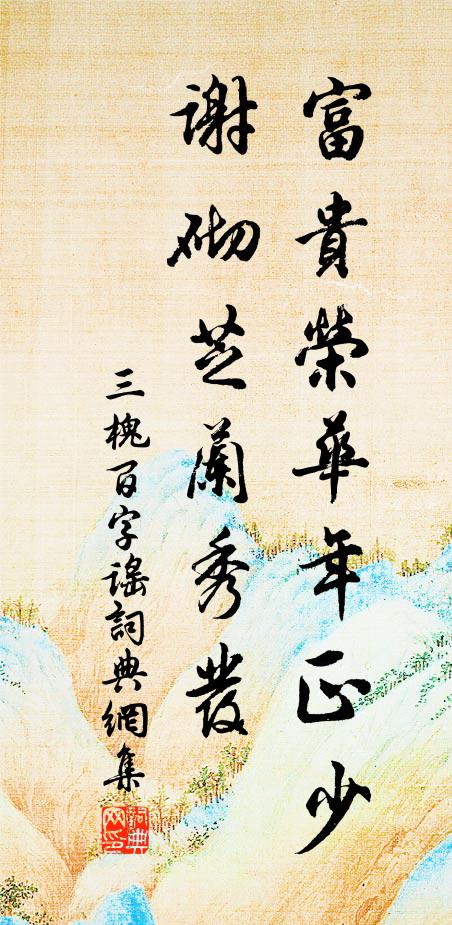 富貴榮華年正少
謝砌芝蘭秀發
三槐百字謠詞典網集
詞典網印